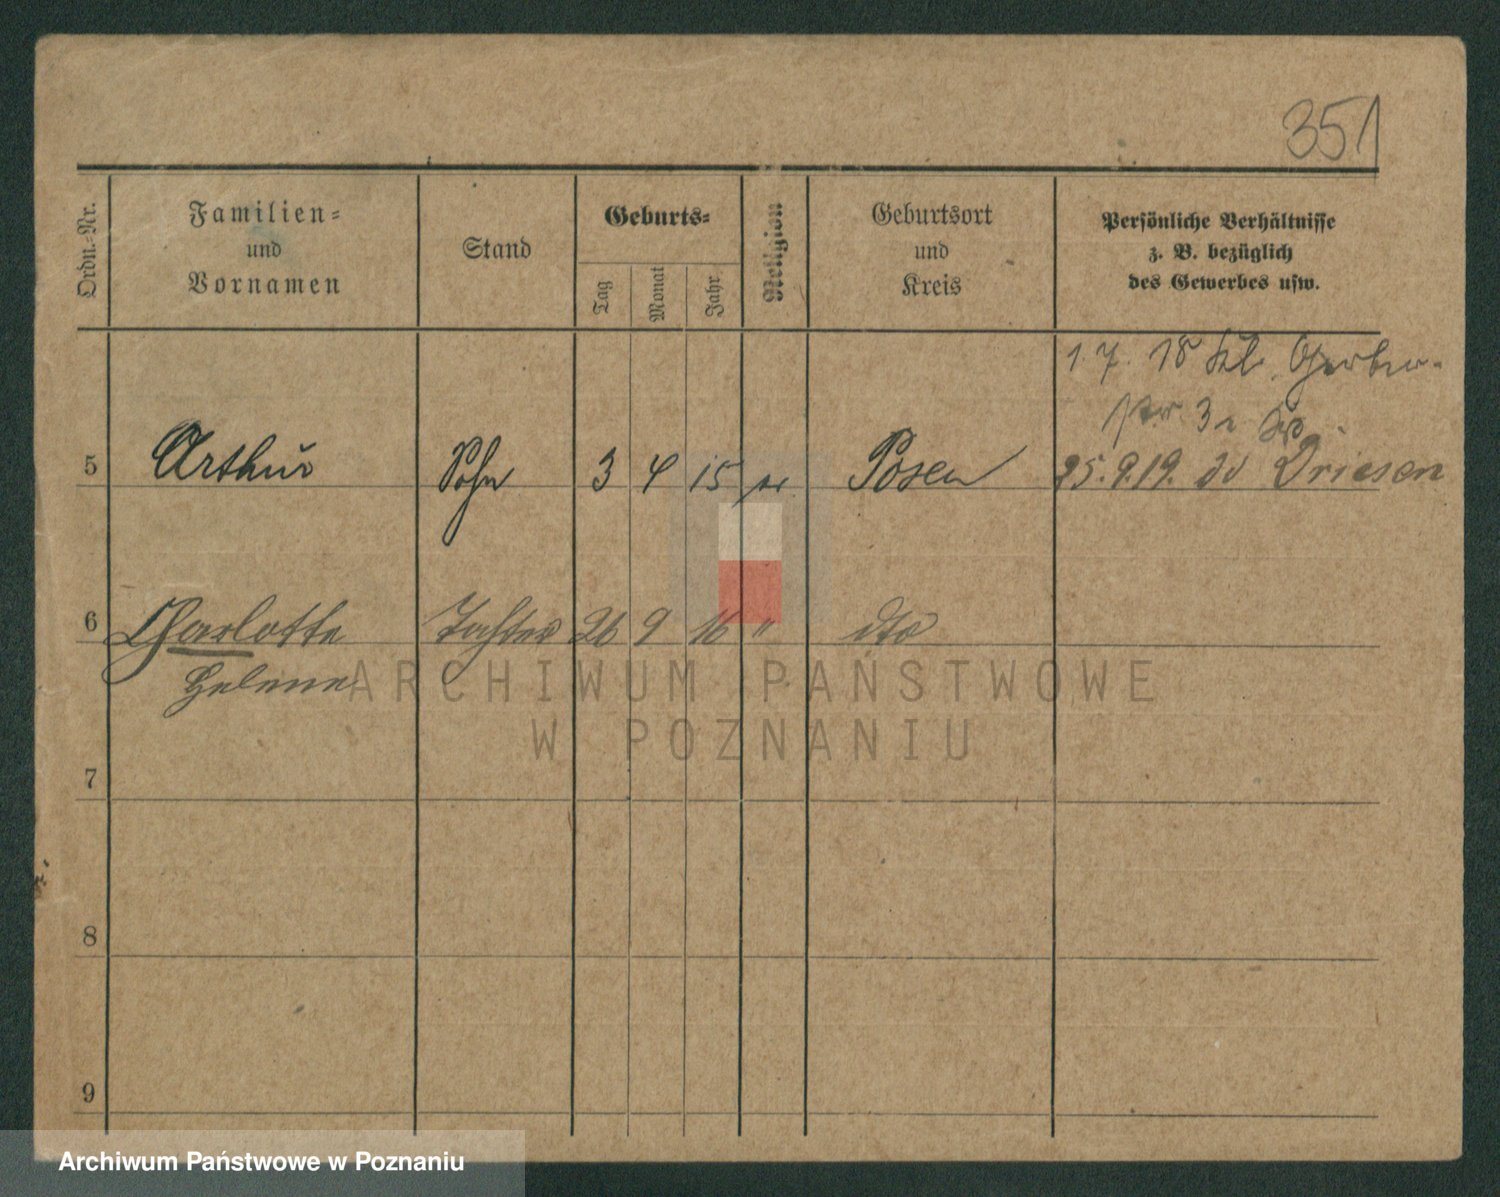 351
Ordn.-Nr.
Familien-
und
Vornamen
Stand
Geburts-
Tag
Monat
Jahr
Religion
Geburtsort
und
Kreis
Persönliche Verhältnisse
z. B. bezüglich
des Gewerbes usw.
1. 7. 18 Kl. Gerber-
str 3
5 Arthur Sohn 3 4 15 Posen 25.9.19. Driesen
6 Charlotte Tochter 26 9 16 " dto
Helene
ARCHIWUM PAŃSTWOWE
W POZNANIU
7
8
9
Archiwum Państwowe w Poznaniu